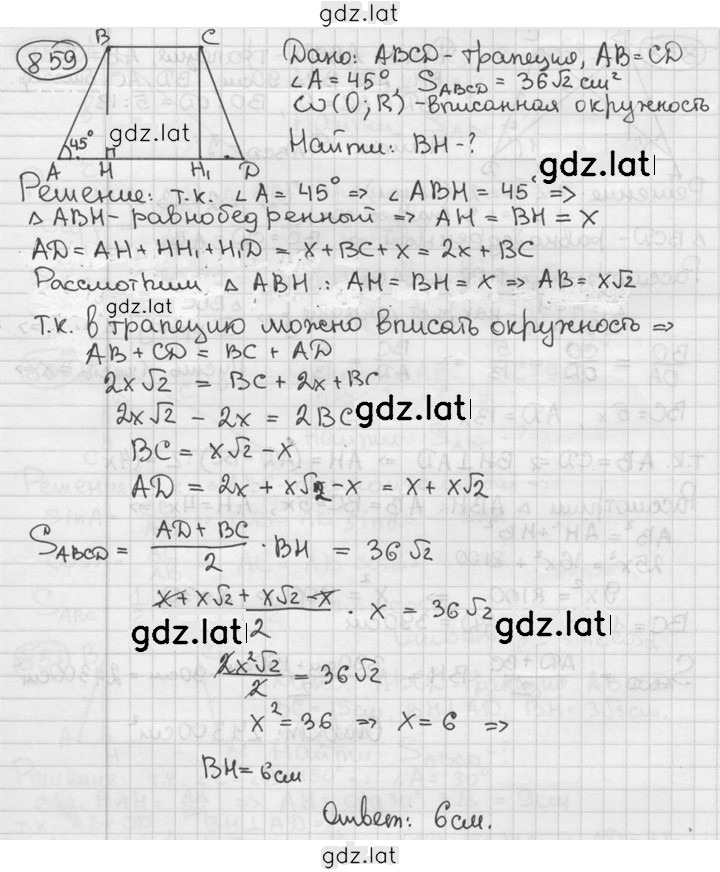 gdz.lat
859
B C
45°
A H H₁ D
gdz.lat
Дано: ABCD - трапеция, AB = CD
∠A = 45°, S_ABCD = 36√2 см²
ω(O; R) - вписанная окружность
Найти: BH - ?
gdz.lat
Решение: т.к. ∠A = 45° => ∠ABH = 45° =>
△ABH - равнобедренный => AH = BH = x
AD = AH + HH₁ + H₁D = x + BC + x = 2x + BC
Рассмотрим △ABH: AH = BH = x => AB = x√2
gdz.lat
т.к. в трапецию можно вписать окружность =>
AB + CD = BC + AD
2x√2 = BC + 2x + BC
2x√2 - 2x = 2BC
gdz.lat
BC = x√2 - x
AD = 2x + x√2 - x = x + x√2
S_ABCD = (AD + BC)/2 · BH = 36√2
(x + x√2 + x√2 - x)/2 · x = 36√2
gdz.lat gdz.lat
2x²√2/2 = 36√2
x² = 36 => x = 6 =>
BH = 6 см
Ответ: 6 см.
gdz.lat